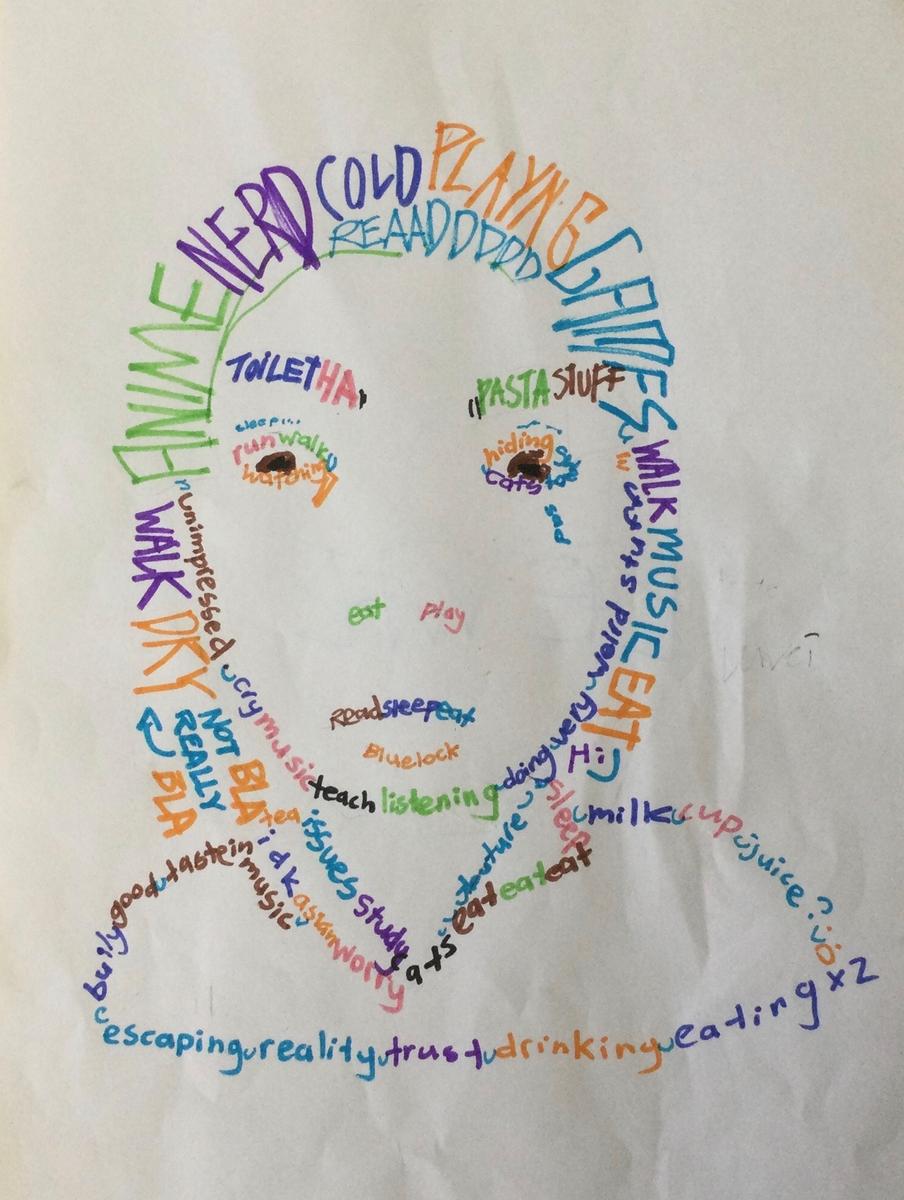 ANIME NERD COLD PLAYNG GAMES
REAADDDDD
TOILET HA
PASTA STUFF
sleep...
run walk
watching
hiding
cats
sad
WALK MUSIC EAT
Hi
WALK DRY
NOT
REALLY
BLA BLA
unimpressed
cry music teach listening
doing very weird
eat play
Read sleep eat
Bluelock
tea issues study
idk asian worry
music
cats eat eat eat
sleep
milk cup juice
tastein
good
escaping reality trust drinking eating x2